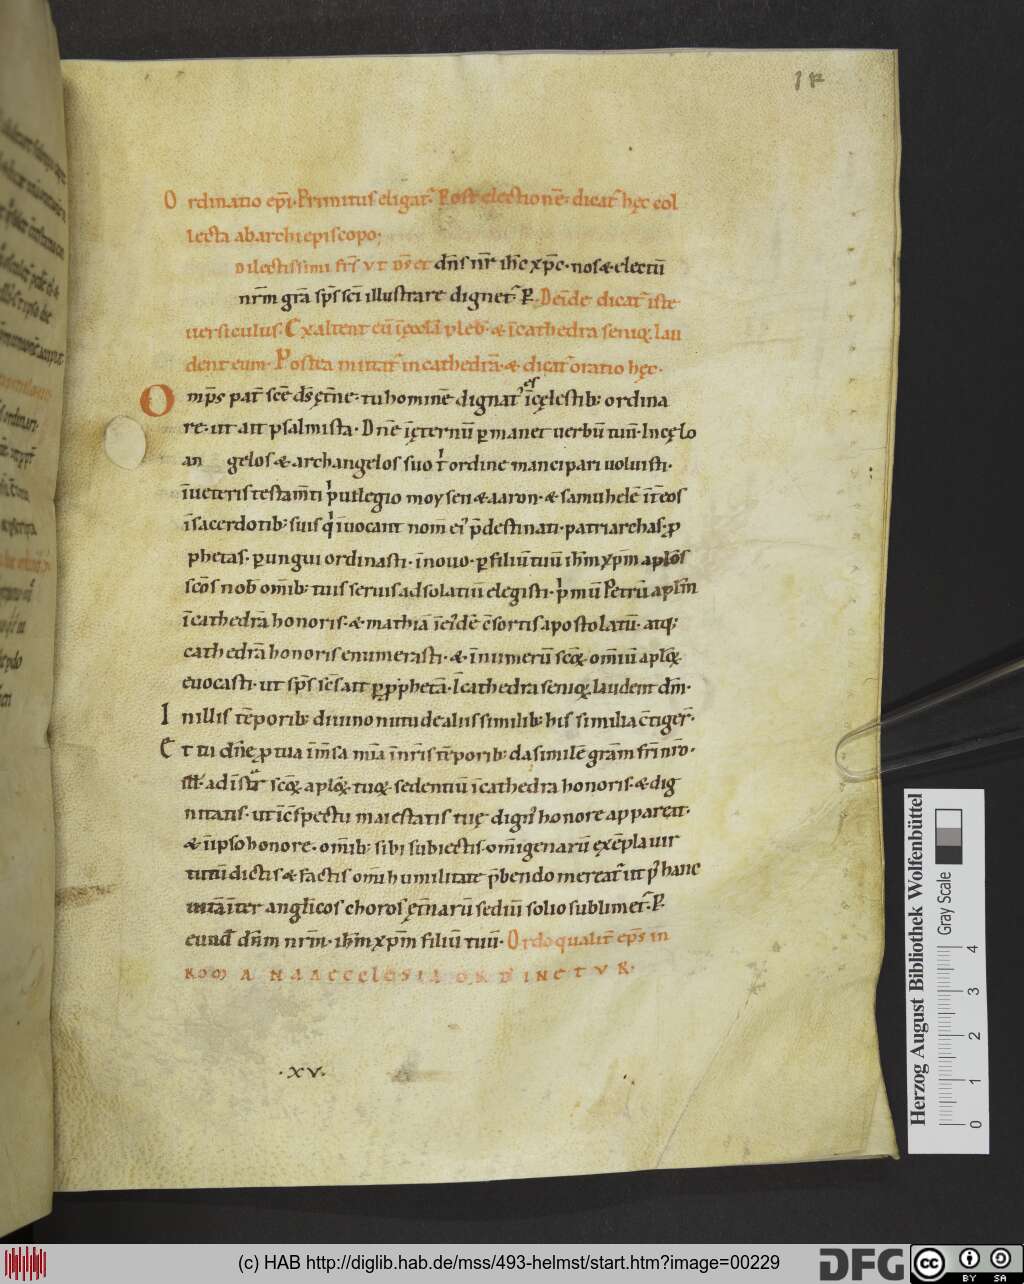 Ordinatio ep̄i. Primitus eligat᷑. Post electionē dicat᷑ hęc col
lecta ab archiepiscopo;
Dilectissimi fr̄s ut ds̄ et dn̄s nr̄ ih̄c xp̄c. nos & electū
nr̄m gr̄a sp̄s sc̄i illustrare dignet᷑. P. Deīde dicat᷑ iste
uersiculus. Exaltent eū ī eccl̄a pleb᷑. & ī cathedra senioꝝ lau
dent eum. Postea mittat᷑ in cathedrā. & dicat᷑ oratio hęc.
Omp̄s pat᷑ sc̄e ds̄ ęt̄ne. tu hominē dignat᷑ es ī cęlestib; ordina
re. ut ait psalmista. Dn̄e ī ęternū ꝑmanet uerbū tuū. In cęlo
an gelos & archangelos suo t᷑ ordine mancipari uoluisti.
ī ueteris testam̄ti priuilegio moysen & aaron. & samuhelē īt᷑ eos
ī sacerdotib; suis qi īuocant nom̄ ei᷒ p̄destinati. patriarchas. ꝓ
phetas. ꝑ ungui ordinasti. ī nouo. ꝑ filiū tuū ih̄m xp̄m aplōs
scōs nob̄ om̄ib; tuis seruis ad solatiū elegisti. primū Petrū apl̄m
ī cathedrā honoris. & mathiā ī ei᷒dē c̄sortis apostolatū. atq;
cathedrā honoris enumerasti. & ī numerū scōꝝ om̄iū apl̄oꝝ
euocasti. ut sp̄s sc̄s ait ꝑ ꝓphetā. ī cathedra senioꝝ laudent dm̄.
In illis tēporib; diuino nutu de aliis similib; his similia c̄tiger̄.
Et tu dn̄e ꝓ tua īm̄sa mīa ī nr̄is tēporib; da similē grām frī nr̄o.
ill̄ ad īstar scōꝝ aplōꝝ tuoꝝ sedentiū ī cathedra honoris. & dig
nitatis. ut ī c̄spectu maiestatis tuę dign᷒ honore appareat.
& ī ipso honore. om̄ib; sibi subiectis. om̄igenarū exēpla uir
tutū dictis & factis omi humilitate p̄bendo mereat᷑ ut p᷒ hanc
uitā īter anglicos choros ęt̄narū sediū solio sublimet᷑. P.
eund̄ dn̄m nr̄m. ih̄m xp̄m filiū tuū. Ordo qualit᷑ ep̄s in
ROMANA AECCLESIA ORDINETUR.
.XV.
Herzog August Bibliothek Wolfenbüttel
Gray Scale
0 1 2 3 4
(c) HAB http://diglib.hab.de/mss/493-helmst/start.htm?image=00229
DFG
cc
BY SA